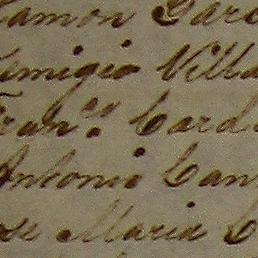 amon Garc
emigio Villa
Fran.co Card
Antonio Can
ose Maria C